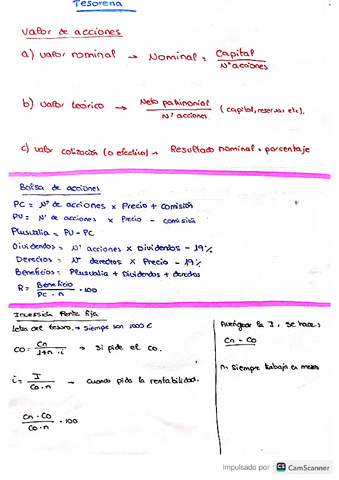 Tesoreria
Valor de acciones
a) valor nominal → Nominal = Capital / Nº acciones
b) valor teórico → Neto patrimonial / Nº acciones (capital, reservas etc).
c) valor cotización (o efectivo) → Resultado nominal * porcentaje
Bolsa de acciones
PC = Nº de acciones x Precio + comisión
PV = Nº de acciones x Precio - comisión
Plusvalia = PV - PC
Dividendos = Nº acciones x Dividendos - 19%
Derechos = Nº derechos x Precio - 19%
Beneficios = Plusvalia + Dividendos + derechos
R = Beneficio / PC · n · 100
Inversión Renta fija
letra del tesoro → Siempre son 1000 €
CO = Cn / 1+n · i → Si pide el CO.
i = I / Co · n → cuando pida la rentabilidad.
Cn - Co / Co · n · 100
Averiguar la I, se hace:
Cn - Co
n. Siempre trabaja en meses
Impulsado por CS CamScanner